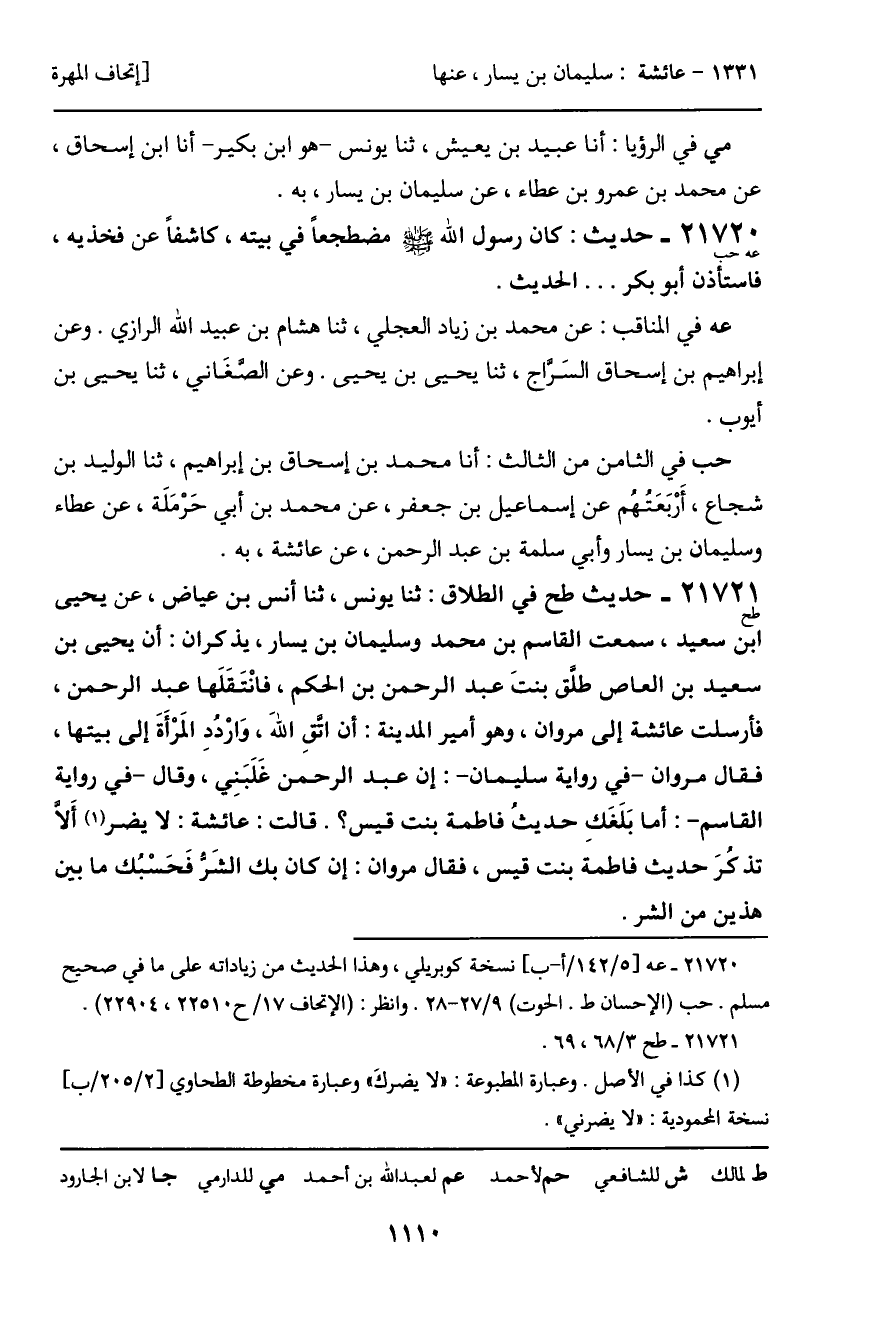 ١٣٣١ - عائشة : سليمان بن يسار ، عنها [إتحاف المهرة
مي في الرؤيا : أنا عبيد بن يعيش ، ثنا يونس -هو ابن بكير- أنا ابن إسحاق ،
عن محمد بن عمرو بن عطاء ، عن سليمان بن يسار ، به .
٢١٧٢٠ ـ حديث : كان رسول الله ﷺ مضطجعاً في بيته ، كاشفاً عن فخذيه ،
عه حب
فاستأذن أبو بكر . . . الحديث .
عه في المناقب : عن محمد بن زياد العجلي ، ثنا هشام بن عبيد الله الرازي . وعن
إبراهيم بن إسحاق السَرَّاج ، ثنا يحيى بن يحيى . وعن الصَّغَاني ، ثنا يحيى بن
أيوب .
حب في الثامن من الثالث : أنا محمد بن إسحاق بن إبراهيم ، ثنا الوليد بن
شجاع ، أَرْبَعَتُهُم عن إسماعيل بن جعفر ، عن محمد بن أبي حَرْمَلَة ، عن عطاء
وسليمان بن يسار وأبي سلمة بن عبد الرحمن ، عن عائشة ، به .
٢١٧٢١ ـ حديث طح في الطلاق : ثنا يونس ، ثنا أنس بن عياض ، عن يحيى
طح
ابن سعيد ، سمعت القاسم بن محمد وسليمان بن يسار ، يذكران : أن يحيى بن
سعيد بن العاص طلَّق بنتَ عبد الرحمن بن الحكم ، فانْتَقَلَها عبد الرحمن ،
فأرسلت عائشة إلى مروان ، وهو أمير المدينة : أن اتَّقِ اللهَ ، وَارْدُدِ المَرْأَةَ إلى بيتها ،
فقال مروان -في رواية سليمان- : إن عبد الرحمن غَلَبَنِي ، وقال -في رواية
القاسم- : أما بَلَغَكِ حديثُ فاطمة بنت قيس؟ . قالت : عائشة : لا يضر(١) أَلاَّ
تذكُرَ حديث فاطمة بنت قيس ، فقال مروان : إن كان بك الشَرُّ فَحَسْبُك ما بين
هذين من الشر .
٢١٧٢٠ ـ عه [١٤٢/٥/أ-ب] نسخة كوبريلي ، وهذا الحديث من زياداته على ما في صحيح
مسلم . حب (الإحسان ط . الحوت) ٢٧/٩-٢٨ . وانظر : (الإتحاف ١٧/ ح٢٢٥١٠ ، ٢٢٩٠٤) .
٢١٧٢١ ـ طح ٦٨/٣ ، ٦٩ .
(١) كذا في الأصل . وعبارة المطبوعة : «لا يضركَ» وعبارة مخطوطة الطحاوي [٢٠٥/٢/ب]
نسخة المحمودية : «لا يضرني» .
ط لمالك ش للشافعي حم لأحمد عم لعبدالله بن أحمد مي للدارمي جا لابن الجارود
١١١٠